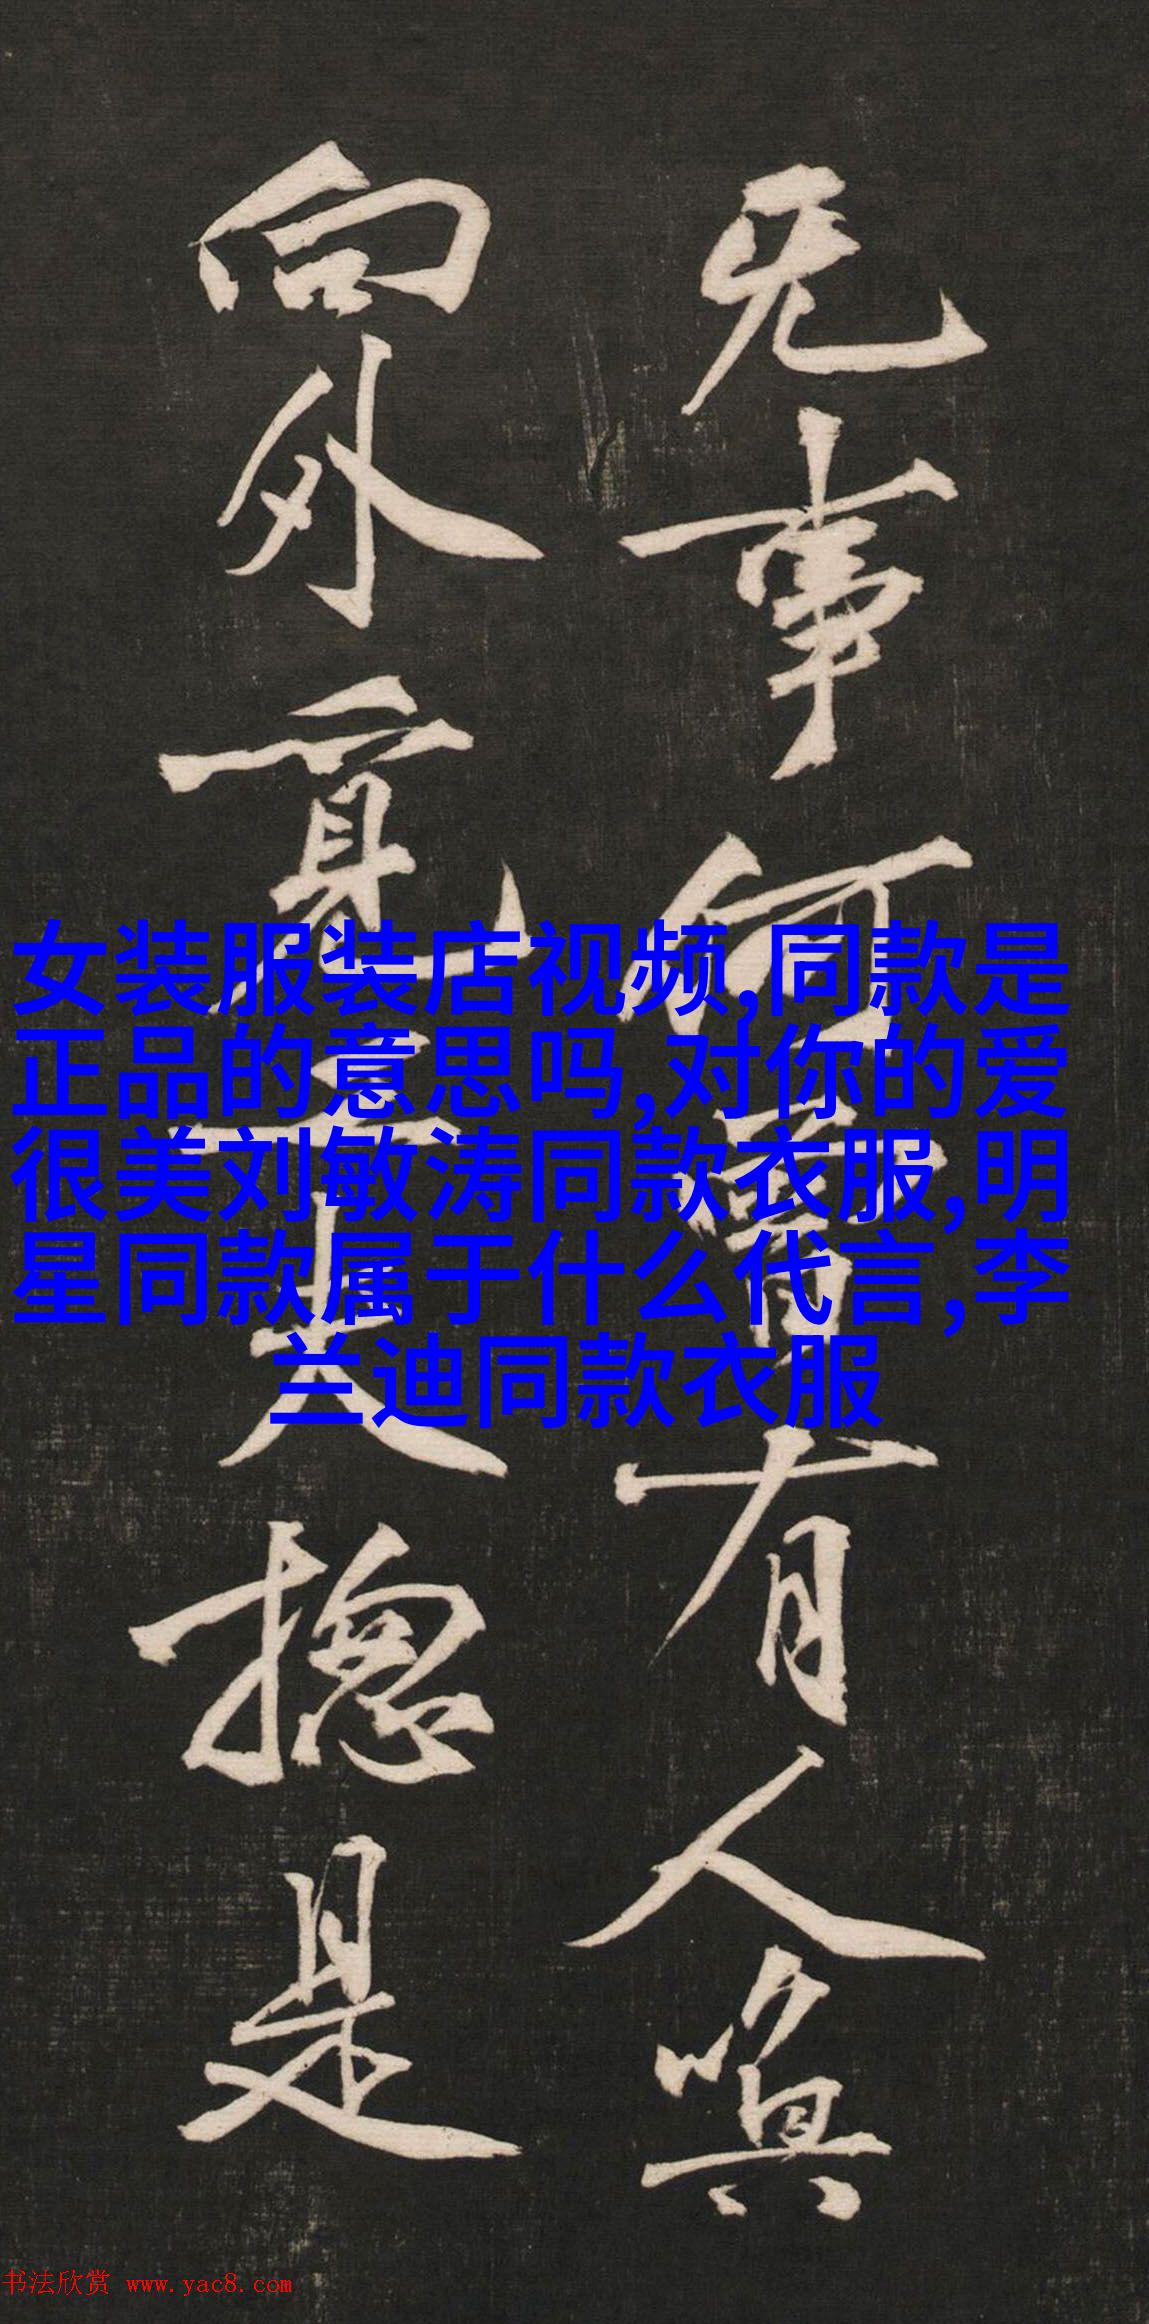 无事何曾有人
向外覓工夫揔是
女装服装店视频,同款是
正品的意思吗,对你的爱
很美刘敏涛同款衣服,明
星同款属于什么代言,李
兰迪同款衣服
书法欣赏 www.yac8.com